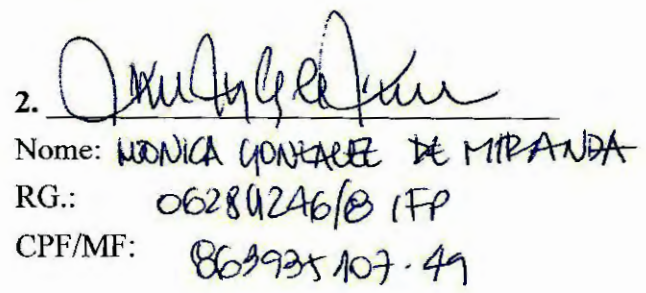 2.
Nome: MONICA GONZALEZ DE MIRANDA
RG.: 06284246/8 IFP
CPF/MF: 863935107-49